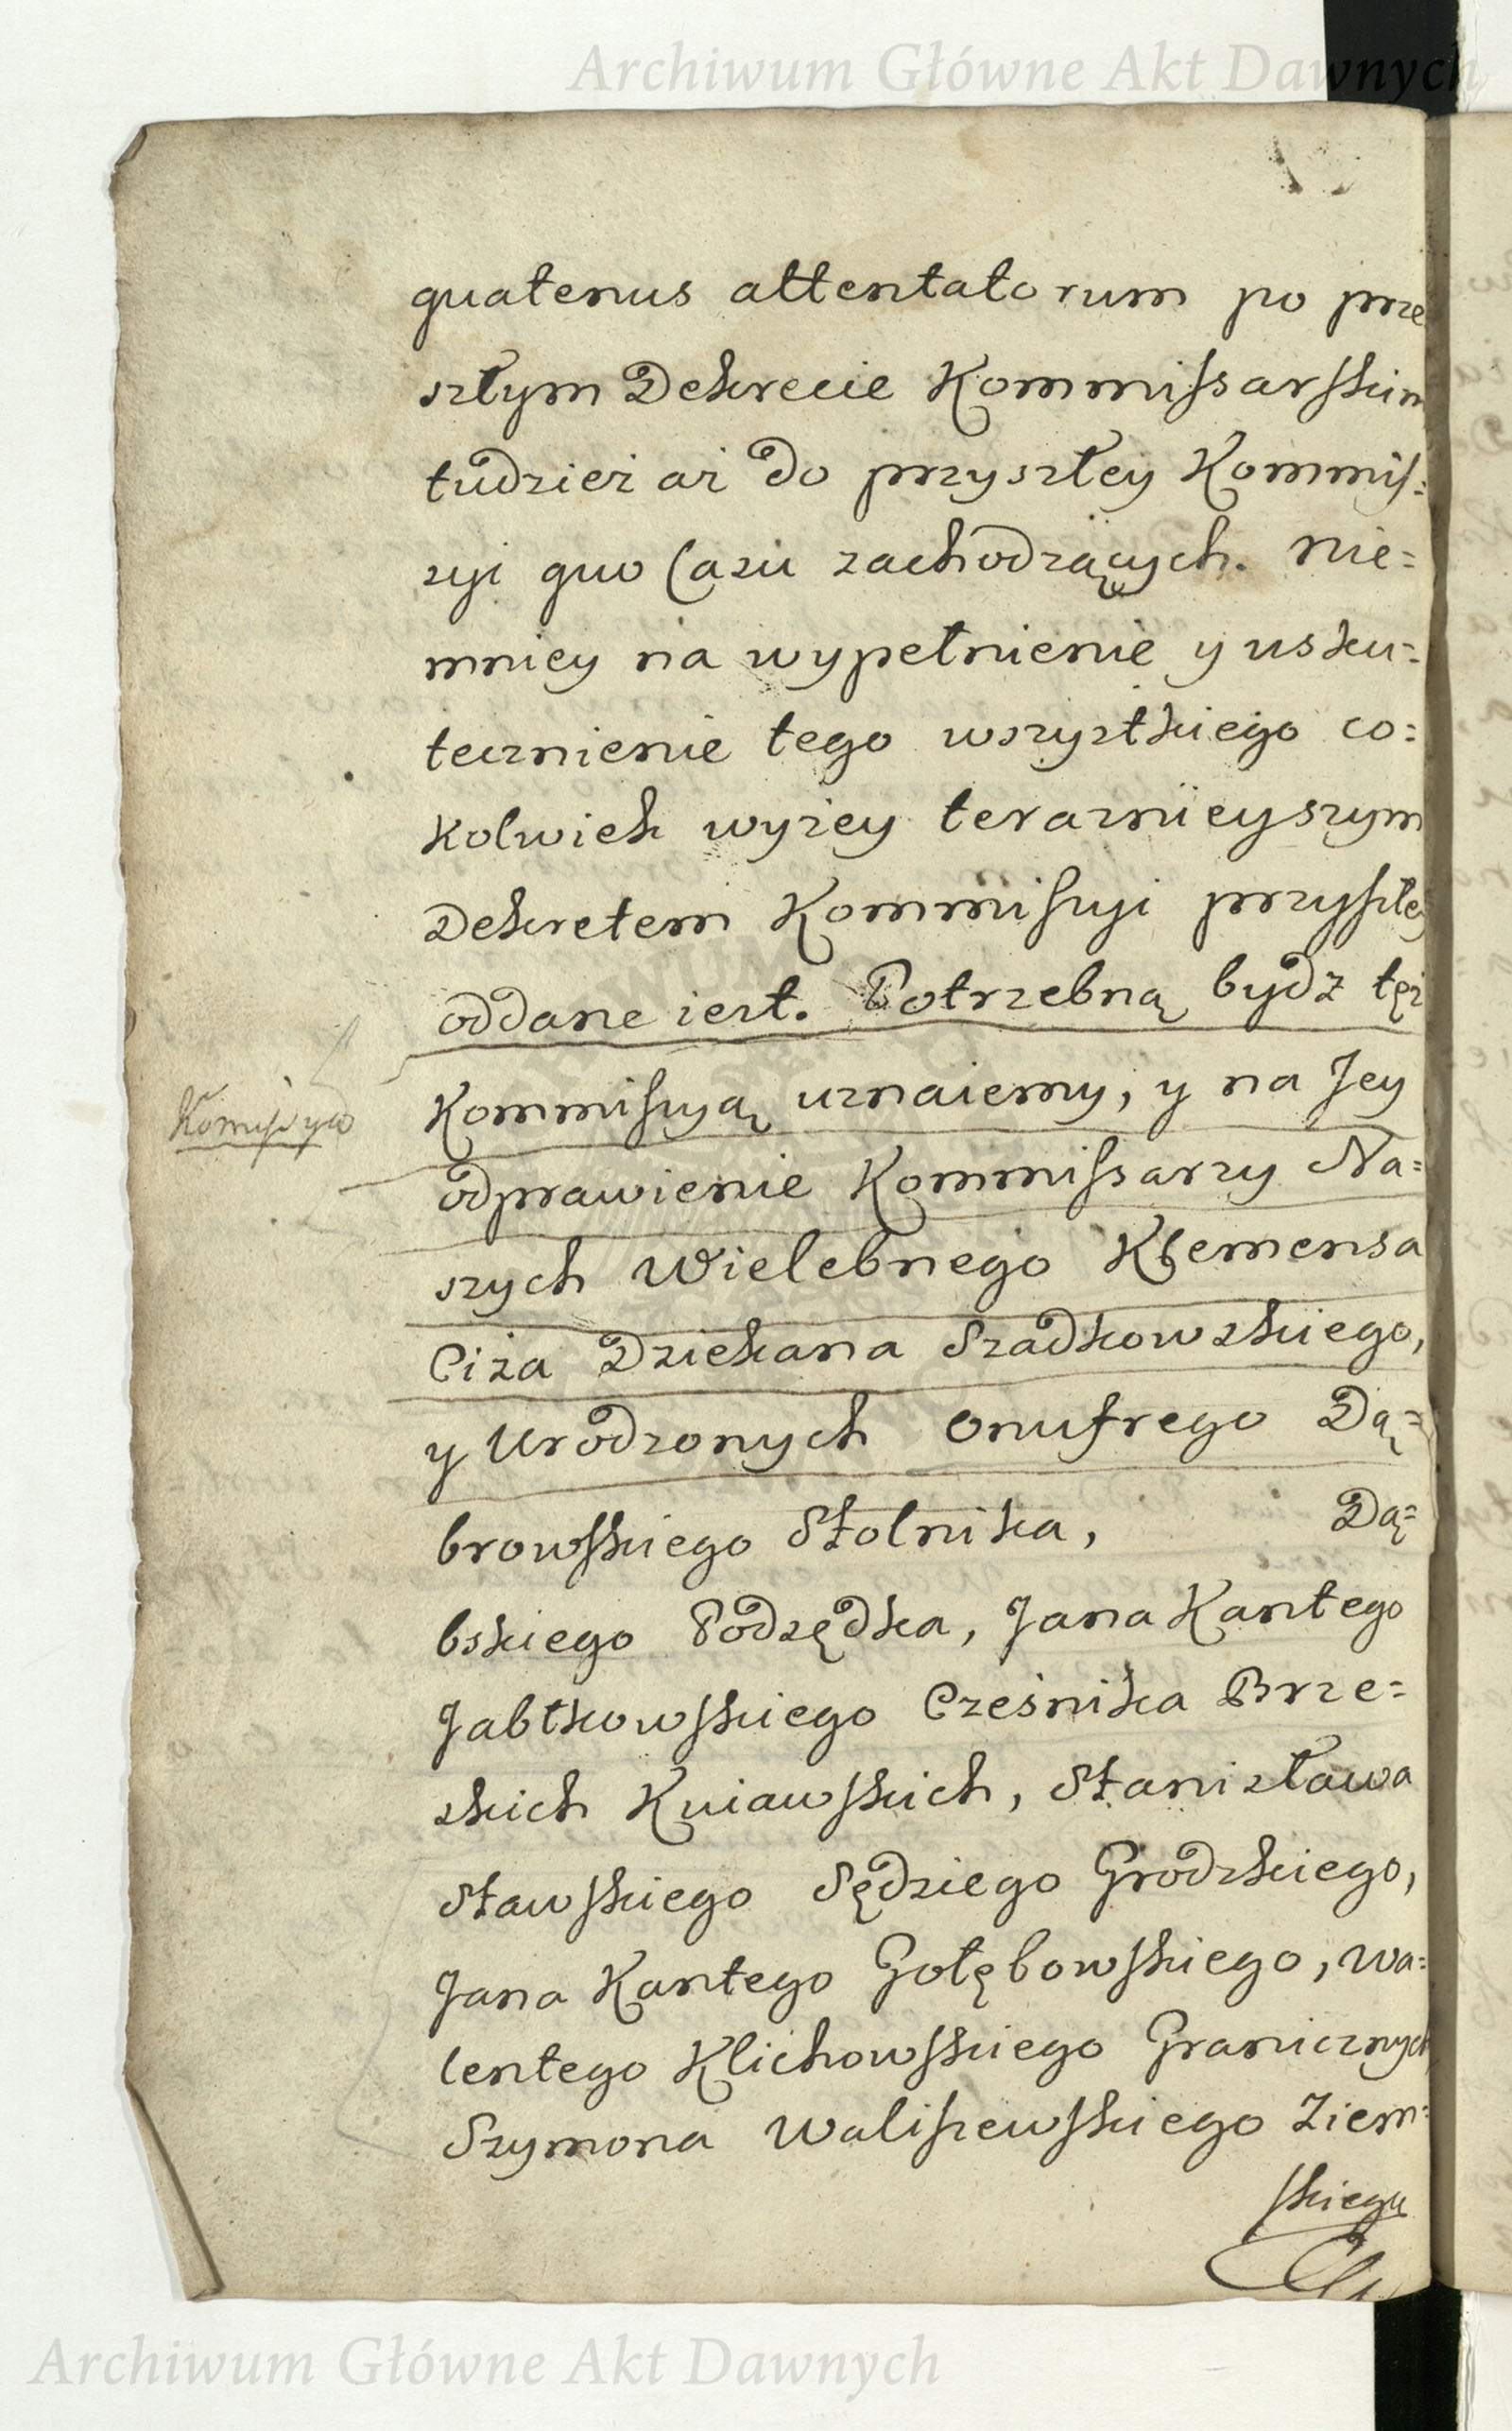 Archiwum Główne Akt Dawnych
quatenus attentatorum po prze
szłym Dekrecie Kommissarskim
tudzież aż do przyszłey Kommis=
syi quo Casu zachodzących. Nie=
mniey na wypełnienie y usku=
tecznienie tego wszystkiego co=
kolwiek wyżey teraznieyszym
Dekretem Kommissyi przyszłey
oddane iest. Potrzebną bydz tęż
Kommissyą uznaiemy, y na Jey
Komissya
odprawienie Kommissarzy Na=
szych Wielebnego Klemensa
Ciża Dziekana Szadkowskiego,
y Urodzonych Onufrego Dą=
browskiego Stolnika, Dą=
bskiego Podsędka, Jana Kantego
Jabłkowskiego Cześnika Brze=
skich Kuiawskich, Stanisława
Stawskiego Sędziego Grodzkiego,
Jana Kantego Gołębowskiego, Wa=
lentego Klichowskiego Granicznych
Szymona Waliszewskiego Ziem=
skiego
Archiwum Główne Akt Dawnych